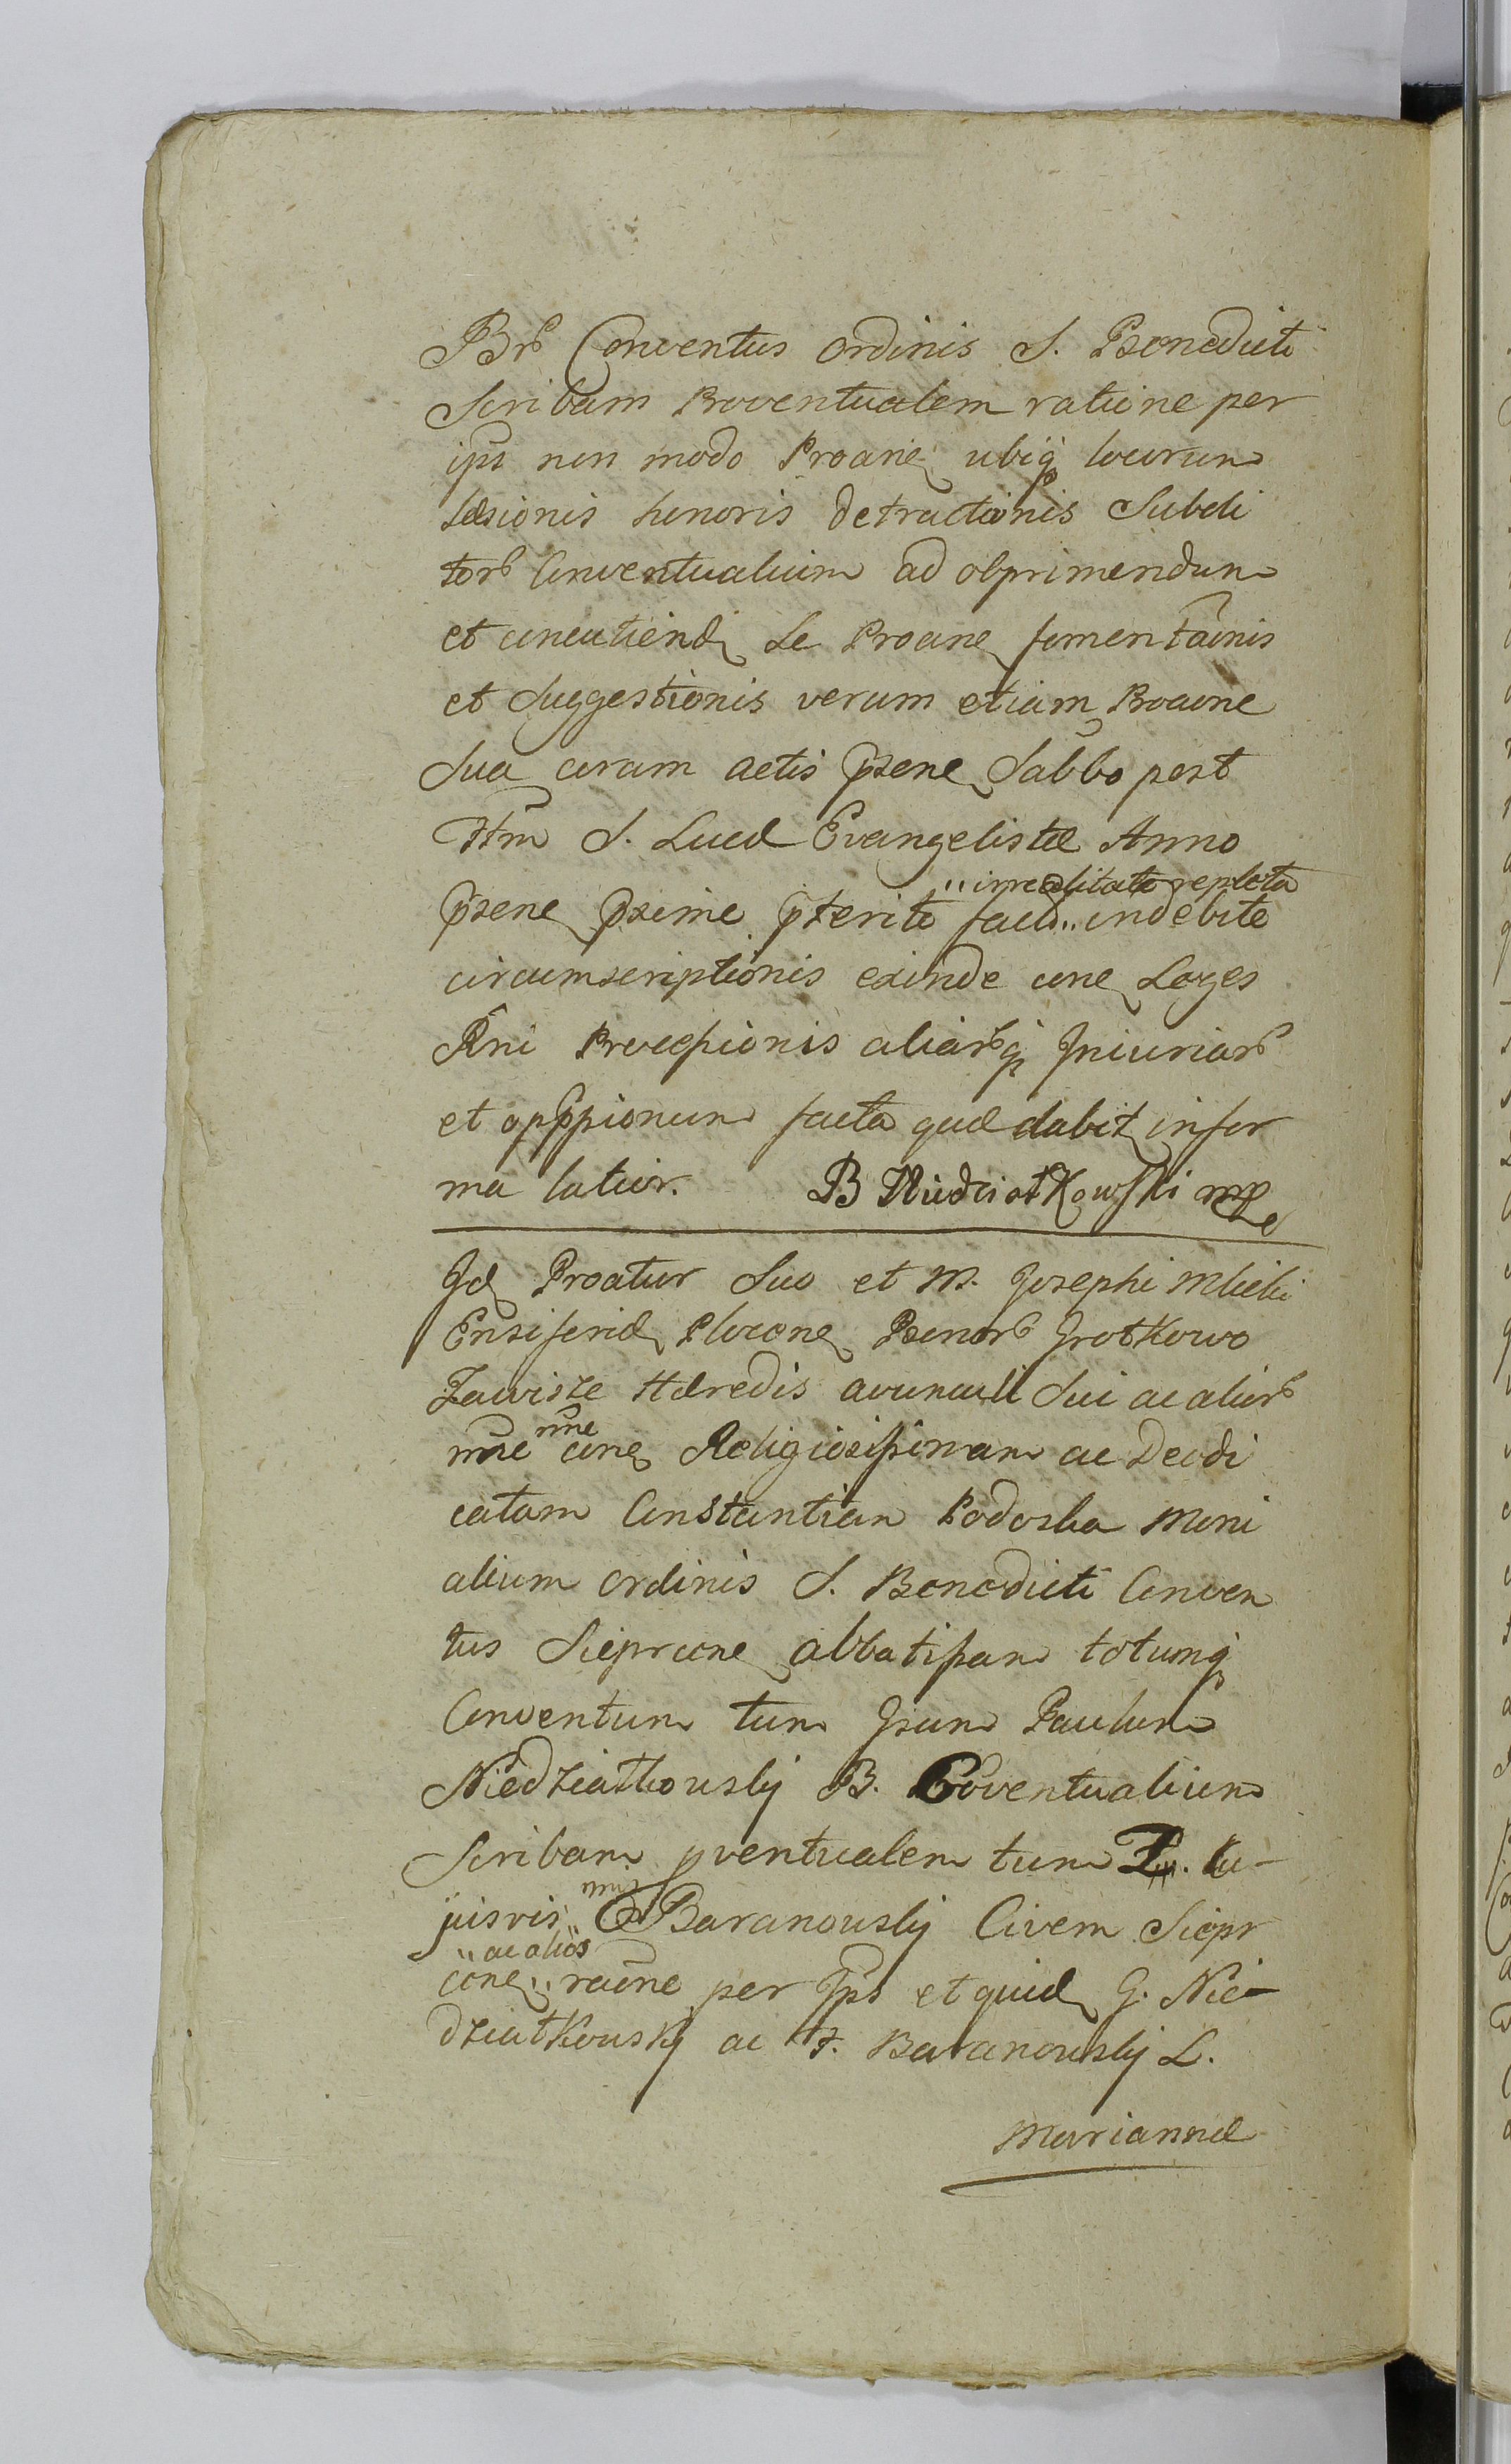 Conventus Ordinis S. Benedicti
Scribam Proventualem ratione per
ips non modo Proane ubiq locorum
læsionis honoris detractionis Subdi
torb Conventualium ad opprimendum
et concutiend Se Proane fomentaõnis
et Suggestionis verum etiam Proaone
Sua coram actis psene Sabbo post
Ftm S. Lucæ Evangelistæ Anno
psene pxime pterito facto "irrealitate repleta" indebite
circumscriptionis exinde cone Leges
Rni Procepionis aliarbq Iniuriarb
et opppionum facta quæ dabit infor
ma latior. B Niedziałkowski mp
Id Proatur Suo et M. Josephi Mlicki
Ensiferid Plocone Bonorb Grotkowo
Zawisze Hæredis avunculi Sui ac aliorb
nne cone Religiosissimam ac Deodi
catam Constantiam Podoska Moni
alium Ordinis S. Benedicti Conven
tus Sieprcone abbatissam totumq
Conventum tum Gsum Paulum
Niedziałkowsky B. Conventualium
Scribam pventualem tum cu-
juisvis nnis Baranowsky Civem Siepr
cone "ac alios" raõne per Ips et quid G. Nie-
działkowsky ac F. Baranowsky L.
Mariannæ